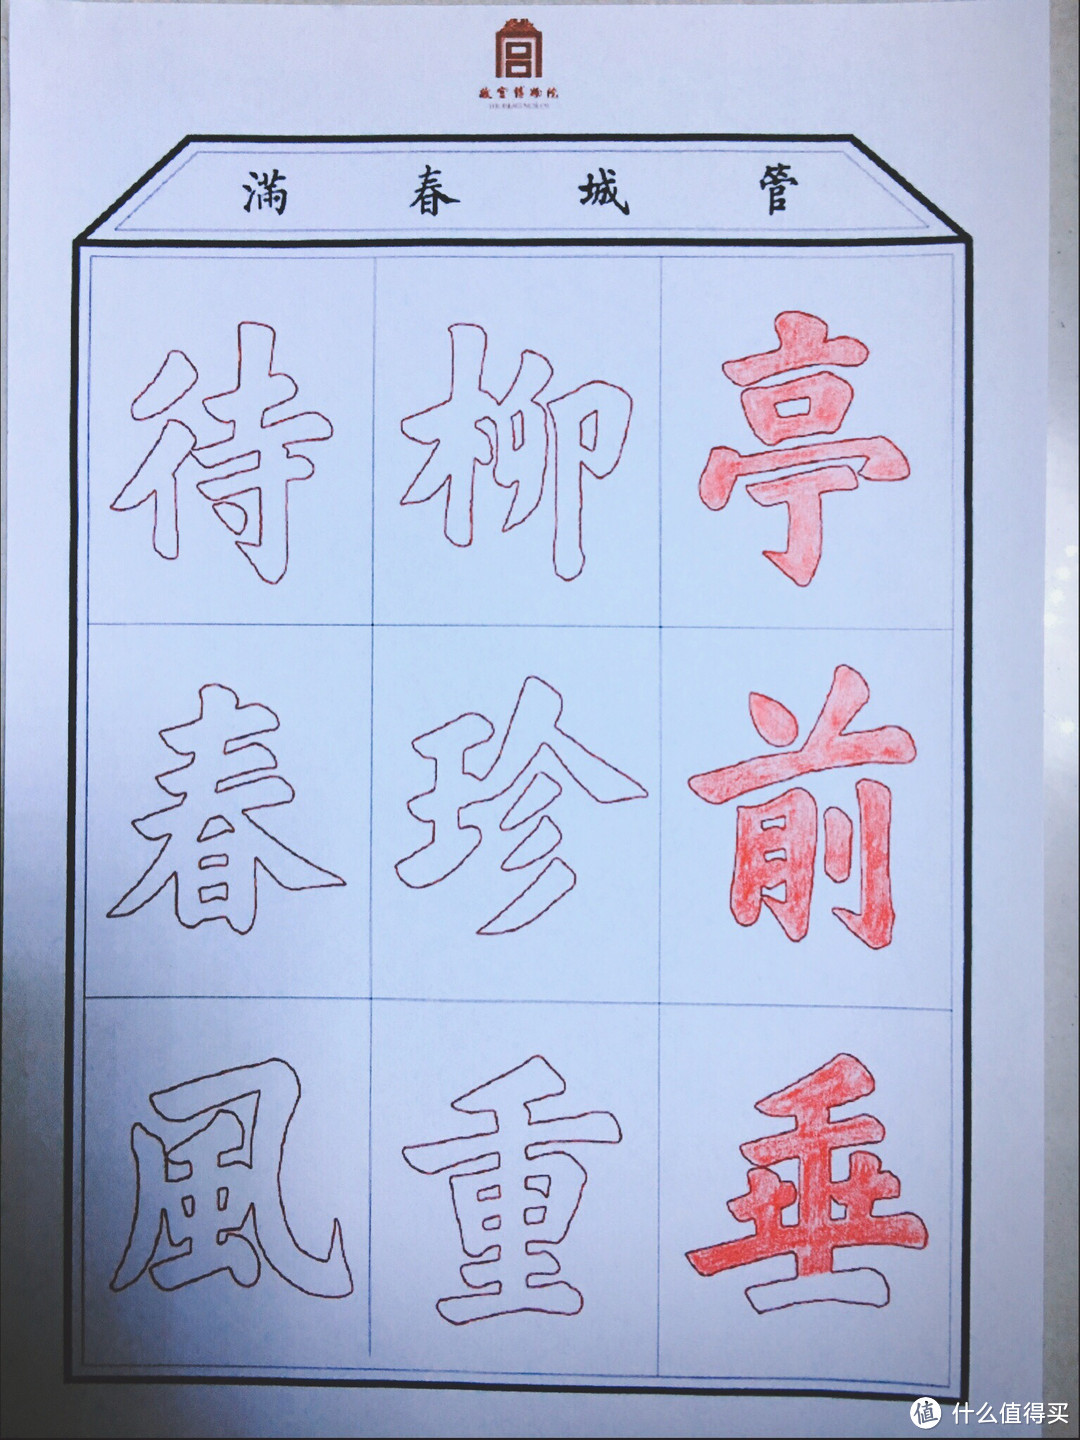 故宮博物院
管城春滿
亭前垂
柳珍重
待春風
值 什么值得买